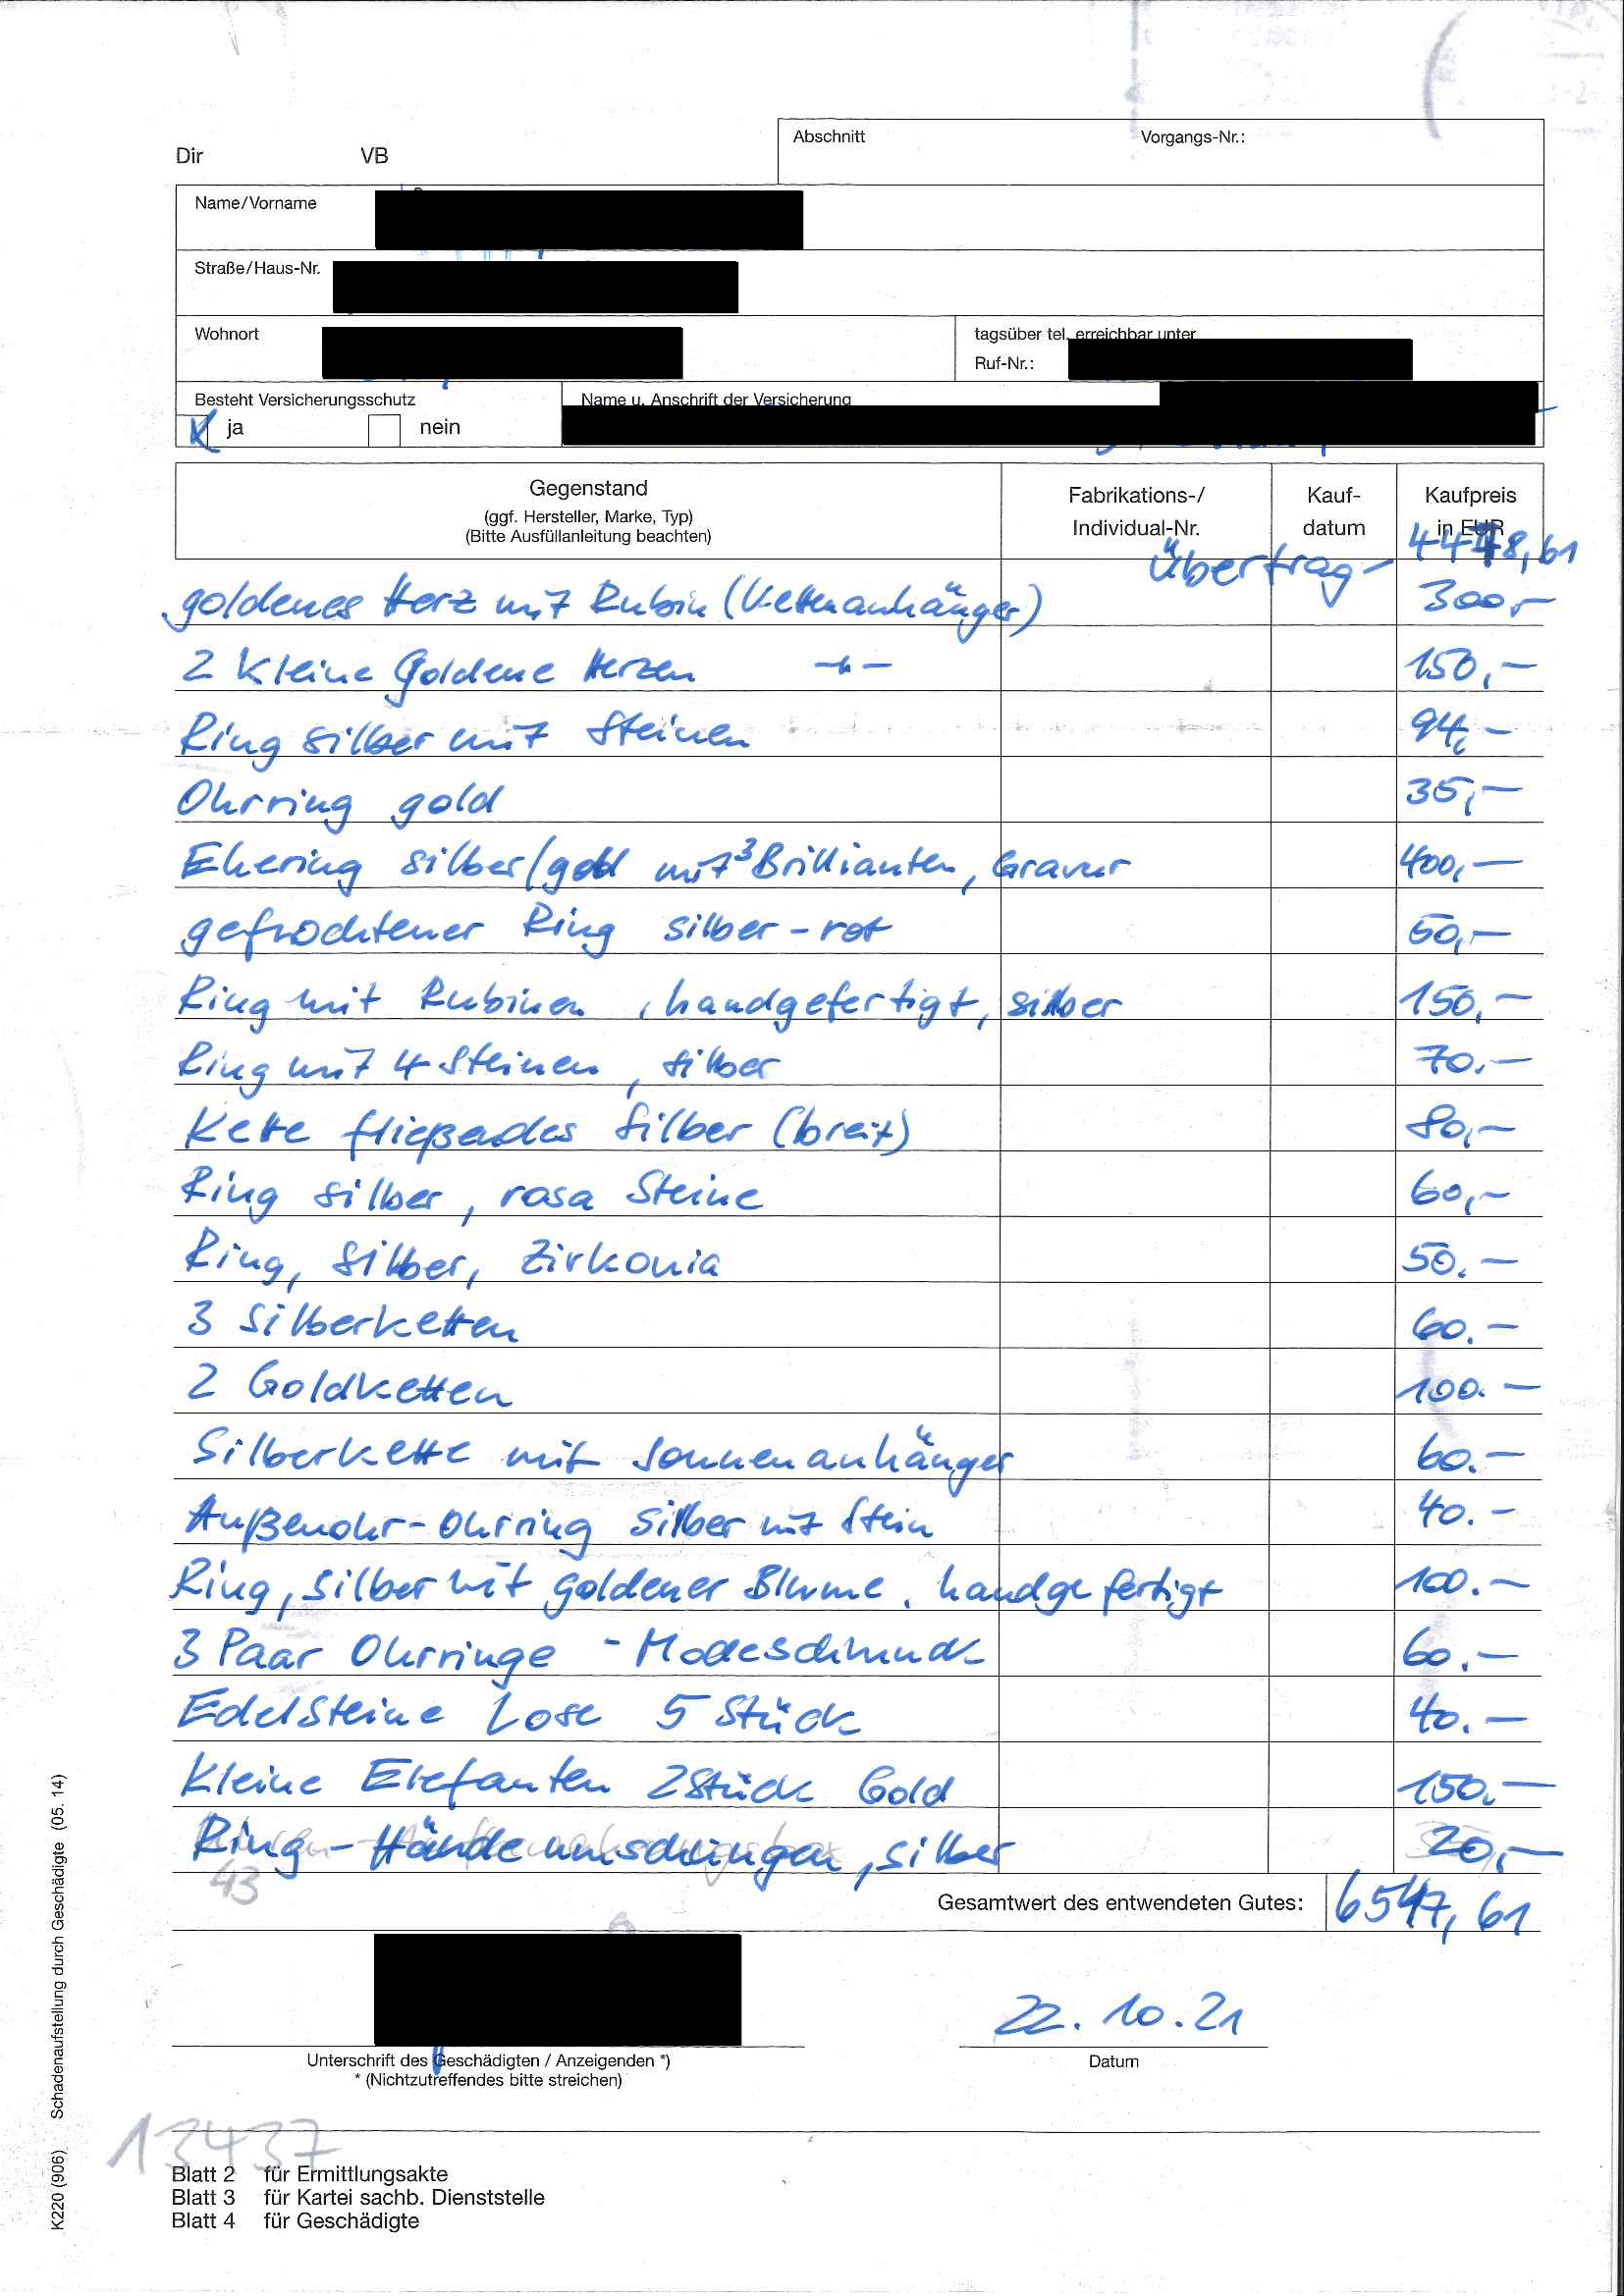 Abschnitt Vorgangs-Nr.:
Dir VB
Name/Vorname
Straße/Haus-Nr.
Wohnort tagsüber tel. erreichbar unter
Ruf-Nr.:
Besteht Versicherungsschutz Name u. Anschrift der Versicherung
ja nein
Gegenstand Fabrikations-/ Kauf- Kaufpreis
(ggf. Hersteller, Marke, Typ) Individual-Nr. datum in EUR
(Bitte Ausfüllanleitung beachten)
Übertrag - 4478,61
goldenes Herz mit Rubin (Kettenanhänger) 300,-
2 kleine Goldene Herzen -"- 150,-
Ring silber mit Steinen 94,-
Ohrring gold 35,-
Ehering silber/gold mit 3 Brillianten, Gravur 400,-
geflochtener Ring silber-rot 50,-
Ring mit Rubinen, handgefertigt, silber 150,-
Ring mit 4 Steinen, silber 70.-
Kette fließendes Silber (breit) 80,-
Ring silber, rosa Steine 60,-
Ring, Silber, Zirkonia 50.-
3 Silberketten 60.-
2 Goldketten 100.-
Silberkette mit Sonnenanhänger 60.-
Außenohr-Ohrring silber mit Stein 40.-
Ring, silber mit goldener Blume, handgefertigt 100.-
3 Paar Ohrringe - Modeschmuck 60.-
Edelsteine Lose 5 Stück 40.-
Kleine Elefanten 2 Stück Gold 150.-
Ring - Hände umschlingen, silber 20,-
43
Gesamtwert des entwendeten Gutes: 6547,61
22.10.21
Unterschrift des Geschädigten / Anzeigenden *) Datum
* (Nichtzutreffendes bitte streichen)
13437
Blatt 2 für Ermittlungsakte
Blatt 3 für Kartei sachb. Dienststelle
Blatt 4 für Geschädigte
K220 (906) Schadenaufstellung durch Geschädigte (05. 14)